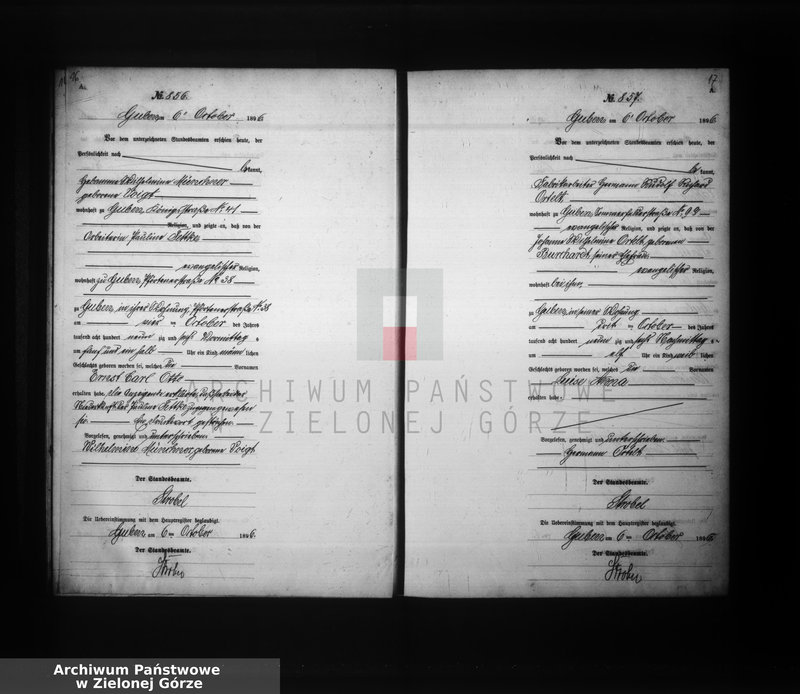 96
A.
№ 856.
Guben am 6. October 1896
Vor dem unterzeichneten Standesbeamten erschien heute, der
Persönlichkeit nach
kannt,
Hebamme Wilhelmine Münchner
geborene Voigt
wohnhaft zu Guben, Königstraße № 41
Religion, und zeigte an, daß von der
Arbeiterin Pauline Jettke
evangelischer Religion,
wohnhaft zu Guben, Pförtenerstraße № 38
zu Guben, in ihrer Wohnung, Pförtenerstraße № 38
am vier ten October des Jahres
tausend acht hundert neun zig und sechs Vormittag s
um fünf und ein halb Uhr ein Kind männlichen
Geschlechts geboren worden sei, welches die Vornamen
Ernst Carl Otto
erhalten habe.
Pauline Jettke zugegen gewesen
sei.
Vorgelesen, genehmigt und unterschrieben
Wilhelmine Münchner, geborene Voigt
Der Standesbeamte.
Strobel
Die Uebereinstimmung mit dem Hauptregister beglaubigt.
Guben am 6 ten October 1896.
Der Standesbeamte.
Strobel
97
A.
№ 857.
Guben am 6. October 1896
Vor dem unterzeichneten Standesbeamten erschien heute, der
Persönlichkeit nach
kannt,
Fabrikarbeiter Hermann Rudolf Richard
wohnhaft zu Guben, № 99
evangelischer Religion, und zeigte an, daß von der
Johanne Wilhelmine geborenen
Burchardt, seiner Ehefrau
evangelischer Religion,
wohnhaft bei ihm,
zu Guben, in seiner Wohnung
am ten October des Jahres
tausend acht hundert neun zig und sechs Nachmittag s
um elf Uhr ein Kind weiblichen
Geschlechts geboren worden sei, welches die Vornamen
erhalten habe.
Vorgelesen, genehmigt und unterschrieben
Hermann
Der Standesbeamte.
Strobel
Die Uebereinstimmung mit dem Hauptregister beglaubigt.
Guben am 6 ten October 1896
Der Standesbeamte.
Strobel
ARCHIWUM PAŃSTWOWE
W ZIELONEJ GÓRZE
Archiwum Państwowe
w Zielonej Górze